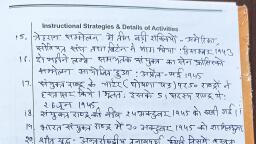 Instructional Strategies & Details of Activities
15. तेहरान सम्मेलन में तीन बड़ी शक्तियों - अमेरिका,
सोवियत संघ तथा ब्रिटेन ने भाग लिया (दिसम्बर 1943
16. दो महीने लम्बे समय तक संयुक्त का सेन फ्रांसिस्को
सम्मेलन आयोजित हुआ : अप्रैल-मई 1945
17. संयुक्त राष्ट्र के चार्टर (घोषणा पत्र) पर 50 राष्ट्रों ने
हस्ताक्षर किये। मूलतः इसके 51 सदस्य राष्ट्र थे
26 जून 1945
18. संयुक्त राष्ट्र की नींव 24 अक्टूबर 1945 को रखी गई।
19. भारत संयुक्त राष्ट्र में 30 अक्टूबर 1945 को शामिल
20. शीत युद्ध : अन्तर्राष्ट्रीय